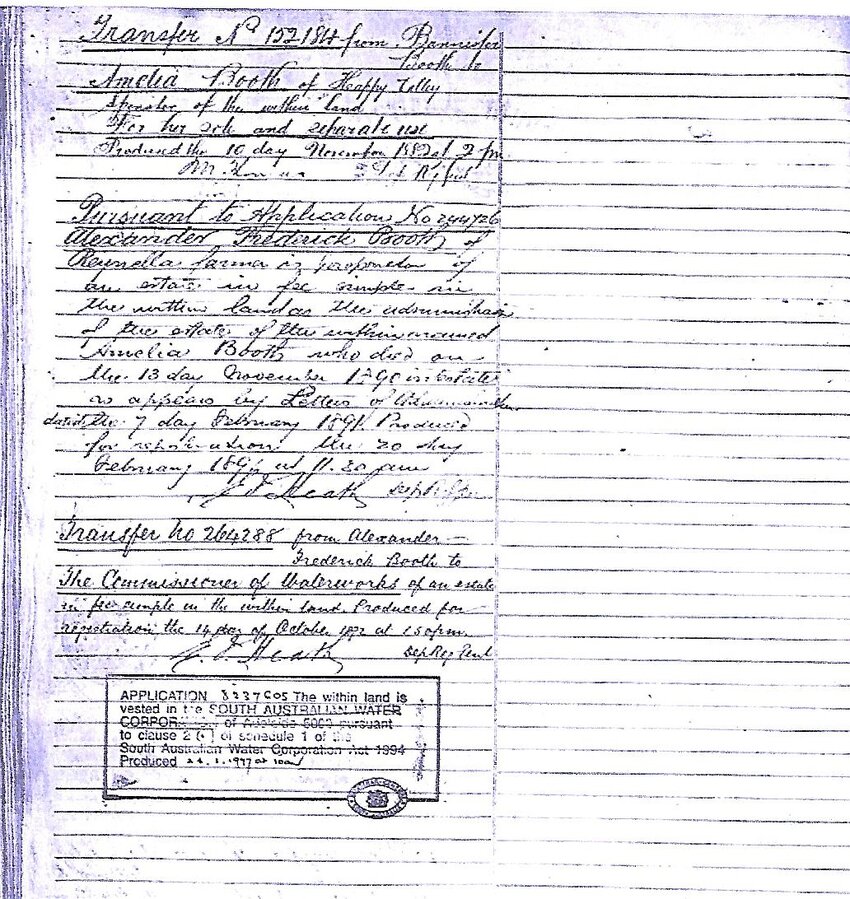 Transfer No 152184 from Bannister
Booth to
Amelia Booth of Happy Valley
Spinster of the within land
For her sole and separate use
Produced the 10 day November 1882 at 2 pm
Pursuant to Application No 244726
Alexander Frederick Booth of
Reynella farmer is proprietor of
an estate in fee simple in
the within land as the administrator
of the estate of the within named
Amelia Booth who died on
the 13 day November 1890 intestate
as appears by Letters of Administration
dated the 7 day February 1891 Produced
for registration the 20 day
February 1891 at 11.20 am
J J Heath Dep Reg Genl
Transfer No 264288 from Alexander
Frederick Booth to
The Commissioner of Waterworks of an estate
in fee simple in the within land Produced for
registration the 14 day of October 1892 at 1.50 pm.
J J Heath Dep Reg Genl
APPLICATION 8237605 The within land is
vested in the SOUTH AUSTRALIAN WATER
CORPORATION of Adelaide 5000 pursuant
to clause 2 of schedule 1 of the
South Australian Water Corporation Act 1994
Produced 24.1.1997 at 10am